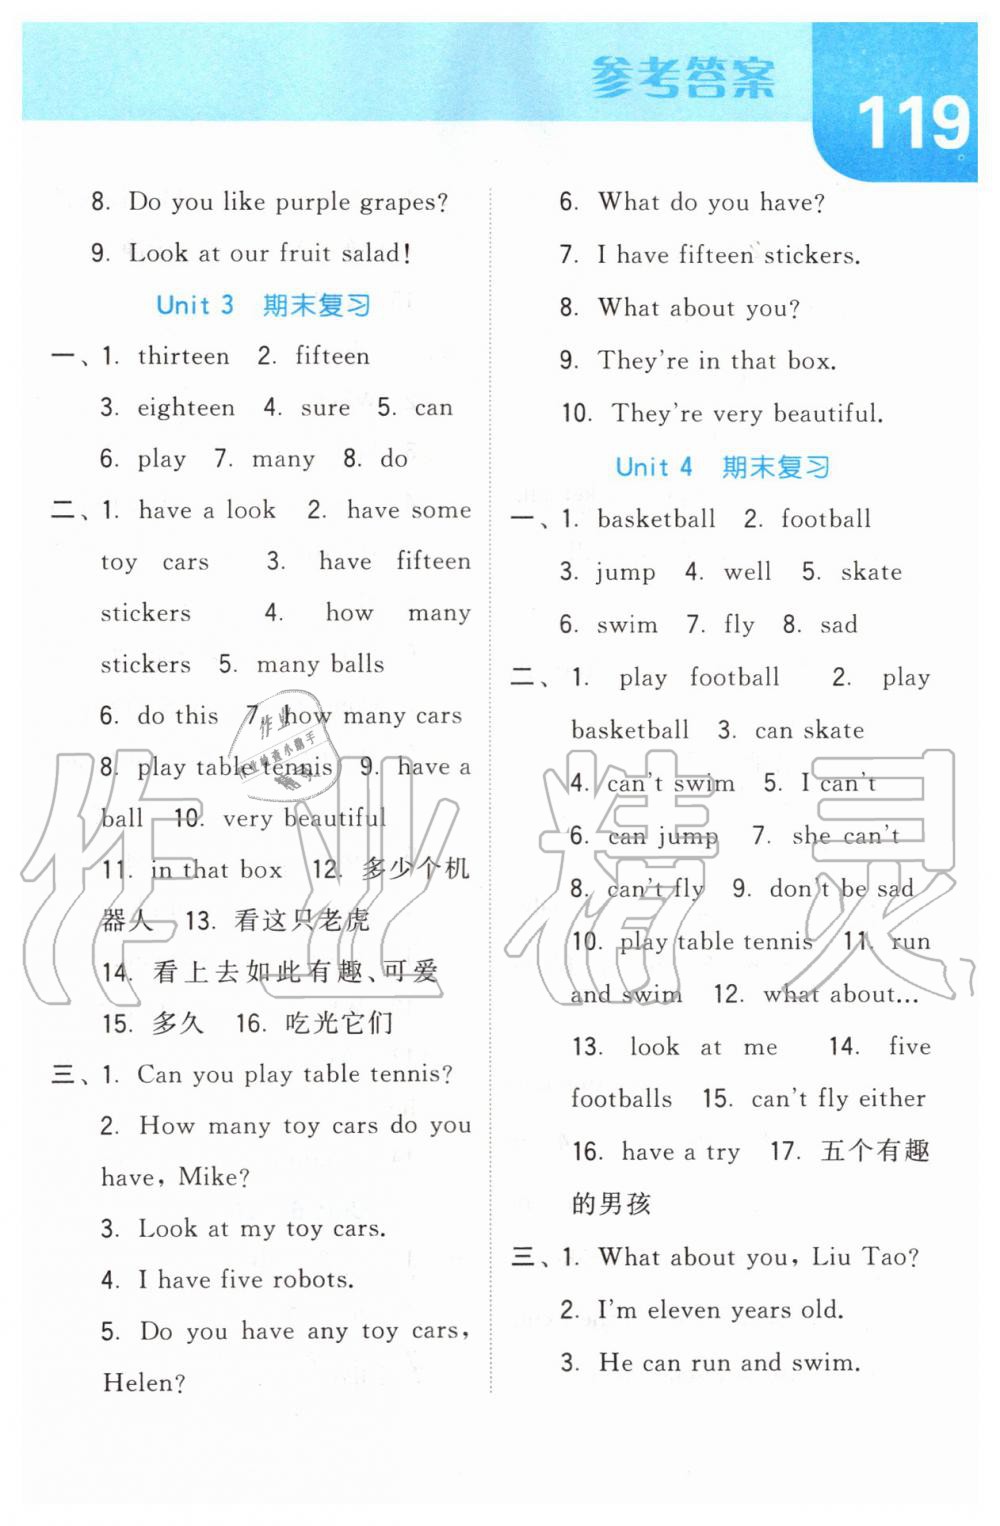 参考答案
119
8. Do you like purple grapes?
9. Look at our fruit salad!
Unit 3 期末复习
一、1. thirteen 2. fifteen
3. eighteen 4. sure 5. can
6. play 7. many 8. do
二、1. have a look 2. have some
toy cars 3. have fifteen
stickers 4. how many
stickers 5. many balls
6. do this 7. how many cars
8. play table tennis 9. have a
ball 10. very beautiful
11. in that box 12. 多少个机
器人 13. 看这只老虎
14. 看上去如此有趣、可爱
15. 多久 16. 吃光它们
三、1. Can you play table tennis?
2. How many toy cars do you
have, Mike?
3. Look at my toy cars.
4. I have five robots.
5. Do you have any toy cars,
Helen?
6. What do you have?
7. I have fifteen stickers.
8. What about you?
9. They're in that box.
10. They're very beautiful.
Unit 4 期末复习
一、1. basketball 2. football
3. jump 4. well 5. skate
6. swim 7. fly 8. sad
二、1. play football 2. play
basketball 3. can skate
4. can't swim 5. I can't
6. can jump 7. she can't
8. can't fly 9. don't be sad
10. play table tennis 11. run
and swim 12. what about...
13. look at me 14. five
footballs 15. can't fly either
16. have a try 17. 五个有趣
的男孩
三、1. What about you, Liu Tao?
2. I'm eleven years old.
3. He can run and swim.
作业精灵